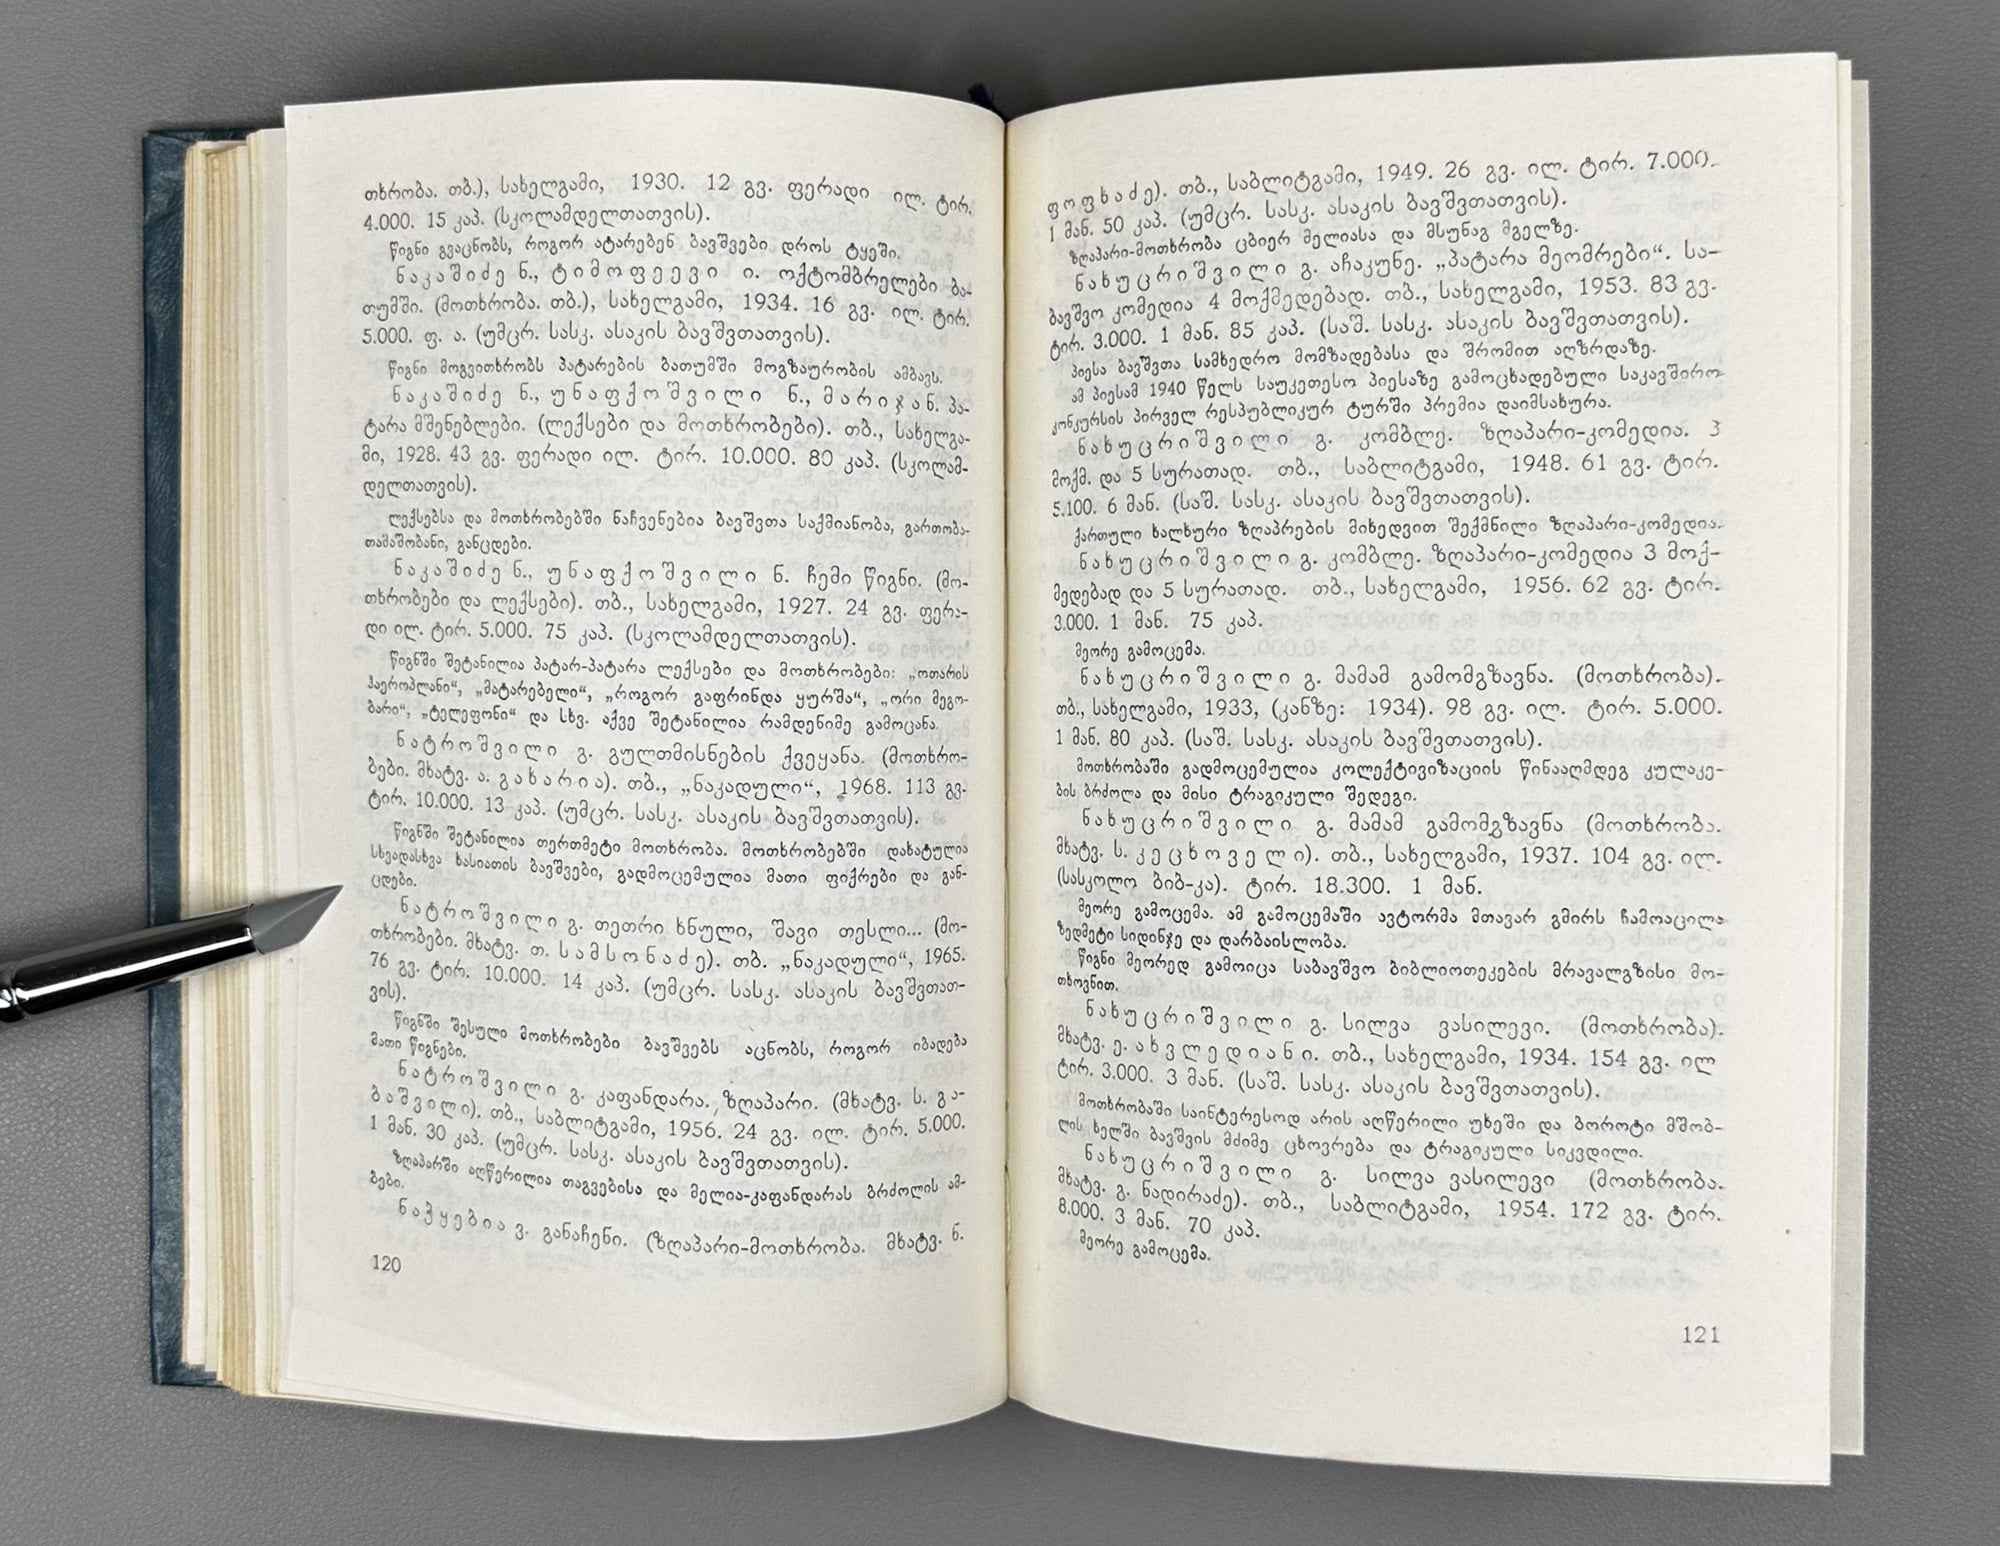 თხრობა. თბ.), სახელგამი, 1930. 12 გვ. ფერადი ილ. ტირ.
4.000. 15 კაპ. (სკოლამდელთათვის).
წიგნი გვაცნობს, როგორ ატარებენ ბავშვები დროს ტყეში.
ნაკაშიძე ნ., ტიმოფეევი ი. ოქტომბრელები ბა-
თუმში. (მოთხრობა. თბ.), სახელგამი, 1934. 16 გვ. ილ. ტირ.
5.000. ფ. ა. (უმცრ. სასკ. ასაკის ბავშვთათვის).
წიგნი მოგვითხრობს პატარების ბათუმში მოგზაურობის ამბავს.
ნაკაშიძე ნ., უნაფქოშვილი ნ., მარიჯან. პა-
ტარა მშენებლები. (ლექსები და მოთხრობები). თბ., სახელგა-
მი, 1928. 43 გვ. ფერადი ილ. ტირ. 10.000. 80 კაპ. (სკოლამ-
დელთათვის).
ლექსებსა და მოთხრობებში ნაჩვენებია ბავშვთა საქმიანობა, გართობა-
თამაშობანი, განცდები.
ნაკაშიძე ნ., უნაფქოშვილი ნ. ჩემი წიგნი. (მო-
თხრობები და ლექსები). თბ., სახელგამი, 1927. 24 გვ. ფერა-
დი ილ. ტირ. 5.000. 75 კაპ. (სკოლამდელთათვის).
წიგნში შეტანილია პატარ-პატარა ლექსები და მოთხრობები: „ოთარის
ჰაეროპლანი“, „მატარებელი“, „როგორ გაფრინდა ყურშა“, „ორი მეგო-
ბარი“, „ტელეფონი“ და სხვ. აქვე შეტანილია რამდენიმე გამოცანა.
ნატროშვილი გ. გულთმისნების ქვეყანა. (მოთხრო-
ბები. მხატვ. ა. გახარია). თბ., „ნაკადული“, 1968. 113 გვ.
ტირ. 10.000. 13 კაპ. (უმცრ. სასკ. ასაკის ბავშვთათვის).
წიგნში შეტანილია თერთმეტი მოთხრობა. მოთხრობებში დახატულია
სხვადასხვა ხასიათის ბავშვები, გადმოცემულია მათი ფიქრები და გან-
ცდები.
ნატროშვილი გ. თეთრი ხნული, შავი თესლი... (მო-
თხრობები. მხატვ. თ. სამსონაძე). თბ. „ნაკადული“, 1965.
76 გვ. ტირ. 10.000. 14 კაპ. (უმცრ. სასკ. ასაკის ბავშვთათ-
ვის).
წიგნში შესული მოთხრობები ბავშვებს აცნობს, როგორ იბადება
მათი წიგნები.
ნატროშვილი გ. კაფანდარა. ზღაპარი. (მხატვ. ს. გა-
ბაშვილი). თბ., საბლიტგამი, 1956. 24 გვ. ილ. ტირ. 5.000.
1 მან. 30 კაპ. (უმცრ. სასკ. ასაკის ბავშვთათვის).
ზღაპარში აღწერილია თაგვებისა და მელია-კაფანდარას ბრძოლის ამ-
ბები.
ნაჭყებია ვ. განაჩენი. (ზღაპარი-მოთხრობა. მხატვ. ნ.
120
ფოფხაძე). თბ., საბლიტგამი, 1949. 26 გვ. ილ. ტირ. 7.000.
1 მან. 50 კაპ. (უმცრ. სასკ. ასაკის ბავშვთათვის).
ზღაპარი-მოთხრობა ცბიერ მელიასა და მსუნაგ მგელზე.
ნახუცრიშვილი გ. აჩაკუნე. „პატარა მეომრები“. სა-
ბავშვო კომედია 4 მოქმედებად. თბ., სახელგამი, 1953. 83 გვ.
ტირ. 3.000. 1 მან. 85 კაპ. (საშ. სასკ. ასაკის ბავშვთათვის).
პიესა ბავშვთა სამხედრო მომზადებასა და შრომით აღზრდაზე.
ამ პიესამ 1940 წელს საუკეთესო პიესაზე გამოცხადებული საკავშირო
კონკურსის პირველ რესპუბლიკურ ტურში პრემია დაიმსახურა.
ნახუცრიშვილი გ. კომბლე. ზღაპარი-კომედია. 3
მოქმ. და 5 სურათად. თბ., საბლიტგამი, 1948. 61 გვ. ტირ.
5.100. 6 მან. (საშ. სასკ. ასაკის ბავშვთათვის).
ქართული ხალხური ზღაპრების მიხედვით შექმნილი ზღაპარი-კომედია.
ნახუცრიშვილი გ. კომბლე. ზღაპარი-კომედია 3 მოქ-
მედებად და 5 სურათად. თბ., სახელგამი, 1956. 62 გვ. ტირ.
3.000. 1 მან. 75 კაპ.
მეორე გამოცემა.
ნახუცრიშვილი გ. მამამ გამომგზავნა. (მოთხრობა).
თბ., სახელგამი, 1933, (კანზე: 1934). 98 გვ. ილ. ტირ. 5.000.
1 მან. 80 კაპ. (საშ. სასკ. ასაკის ბავშვთათვის).
მოთხრობაში გადმოცემულია კოლექტივიზაციის წინააღმდეგ კულაკე-
ბის ბრძოლა და მისი ტრაგიკული შედეგი.
ნახუცრიშვილი გ. მამამ გამომგზავნა (მოთხრობა.
მხატვ. ს. კეცხოველი). თბ., სახელგამი, 1937. 104 გვ. ილ.
(სასკოლო ბიბ-კა). ტირ. 18.300. 1 მან.
მეორე გამოცემა. ამ გამოცემაში ავტორმა მთავარ გმირს ჩამოაცილა
ზედმეტი სიდინჯე და დარბაისლობა.
წიგნი მეორედ გამოიცა საბავშვო ბიბლიოთეკების მრავალგზისი მო-
თხოვნით.
ნახუცრიშვილი გ. სილვა ვასილევი. (მოთხრობა).
მხატვ. ე. ახვლედიანი. თბ., სახელგამი, 1934. 154 გვ. ილ
ტირ. 3.000. 3 მან. (საშ. სასკ. ასაკის ბავშვთათვის).
მოთხრობაში საინტერესოდ არის აღწერილი უხეში და ბოროტი მშობ-
ლის ხელში ბავშვის მძიმე ცხოვრება და ტრაგიკული სიკვდილი.
ნახუცრიშვილი გ. სილვა ვასილევი (მოთხრობა.
მხატვ. გ. ნადირაძე). თბ., საბლიტგამი, 1954. 172 გვ. ტირ.
8.000. 3 მან. 70 კაპ.
მეორე გამოცემა.
121